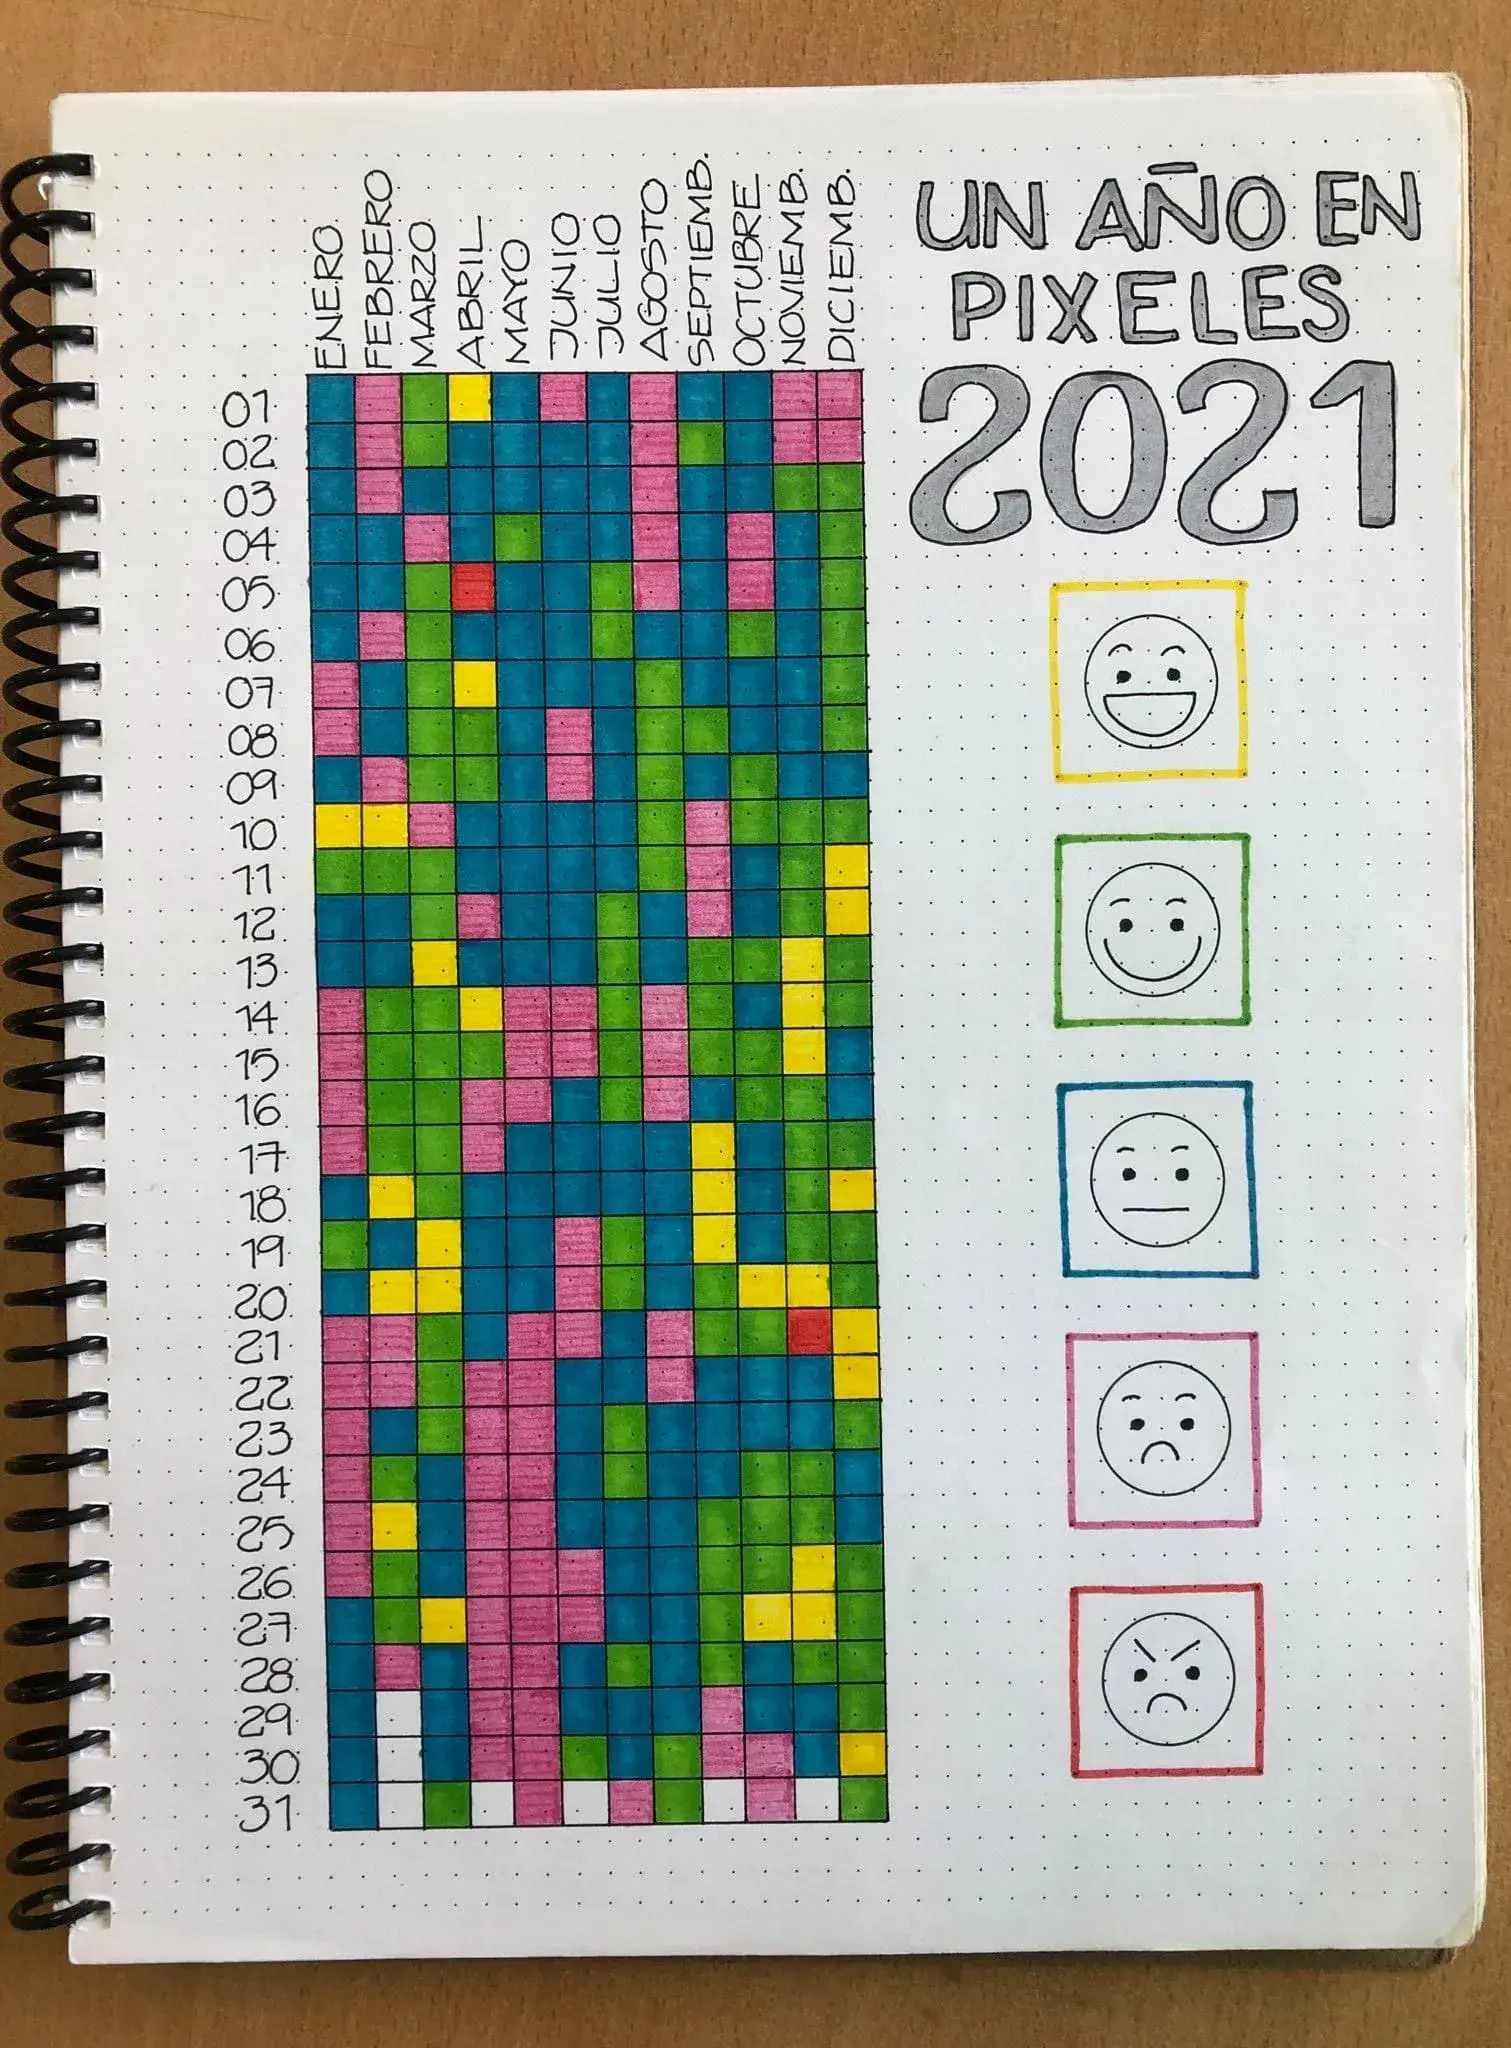 UN AÑO EN
PIXELES
2021
ENERO
FEBRERO
MARZO
ABRIL
MAYO
JUNIO
JULIO
AGOSTO
SEPTIEMB.
OCTUBRE
NOVIEMB.
DICIEMB.
01
02
03
04
05
06
07
08
09
10
11
12
13
14
15
16
17
18
19
20
21
22
23
24
25
26
27
28
29
30
31